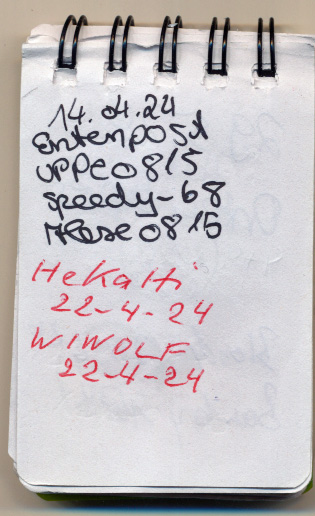 14.04.24
Entenpost
uppe0815
speedy-68
Hase0815
HeKaHi
22-4-24
WIWOLF
22-4-24